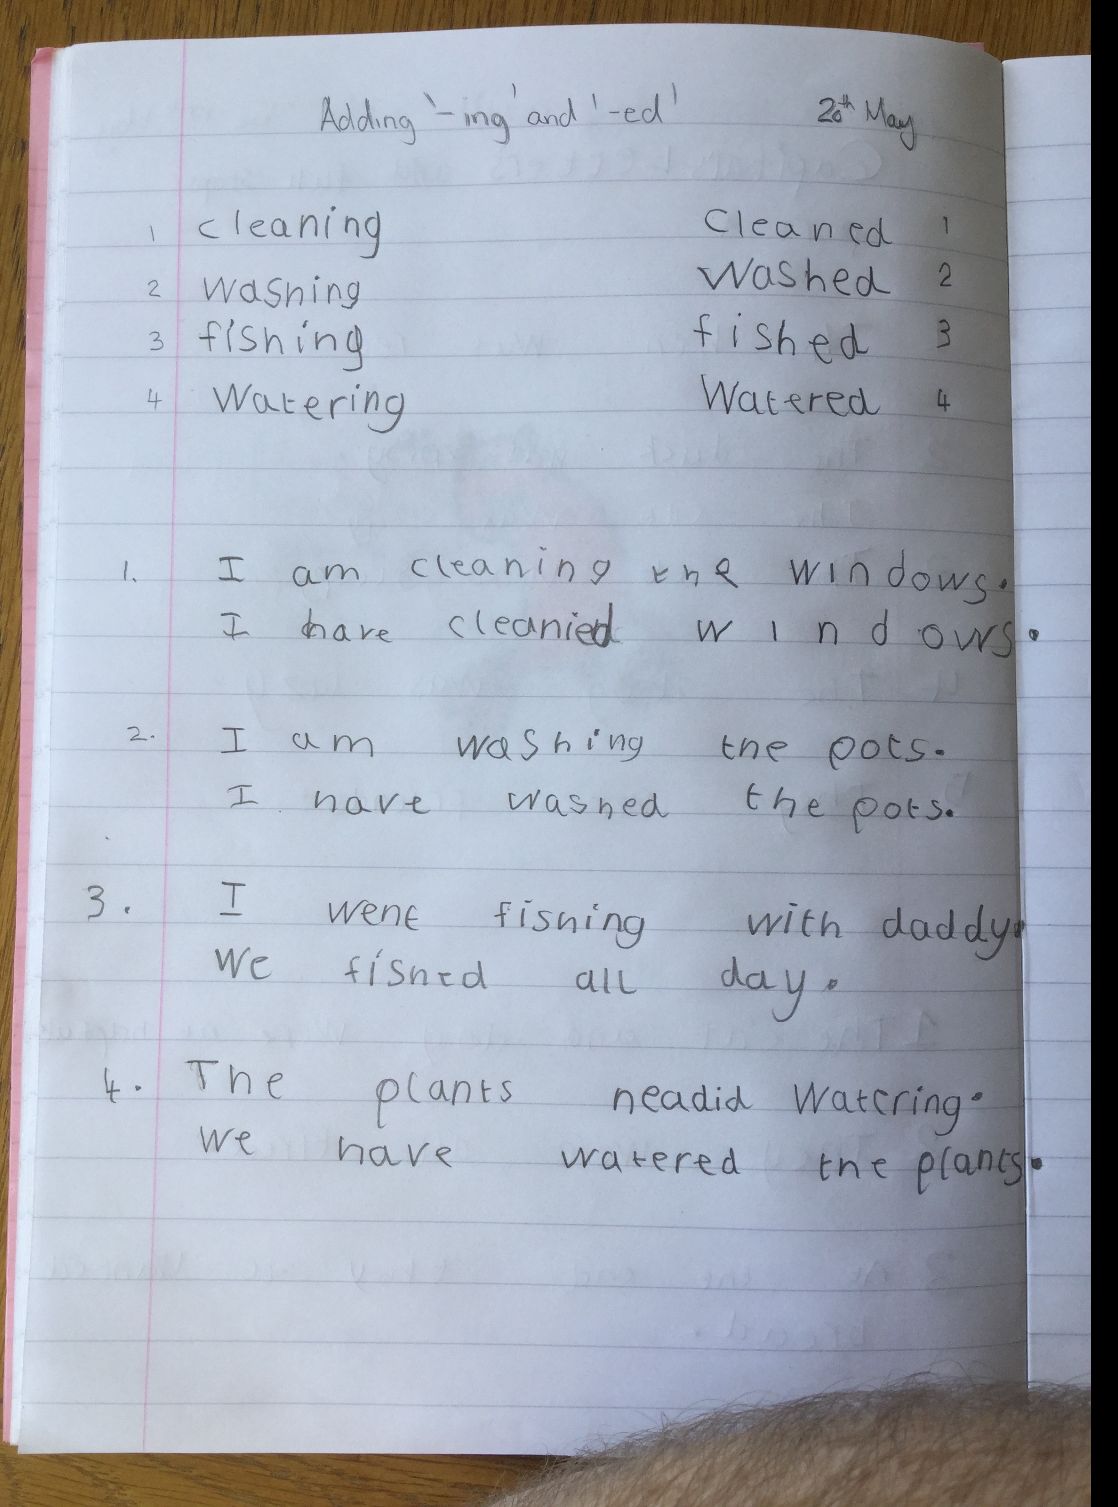 Adding '-ing' and '-ed' 20th May
1 cleaning Cleaned 1
2 washing Washed 2
3 fishing fished 3
4 Watering Watered 4
1. I am cleaning the windows.
I have cleanied windows.
2. I am washing the pots.
I have washed the pots.
3. I went fishing with daddy.
We fished all day.
4. The plants neadid Watering.
We have watered the plants.